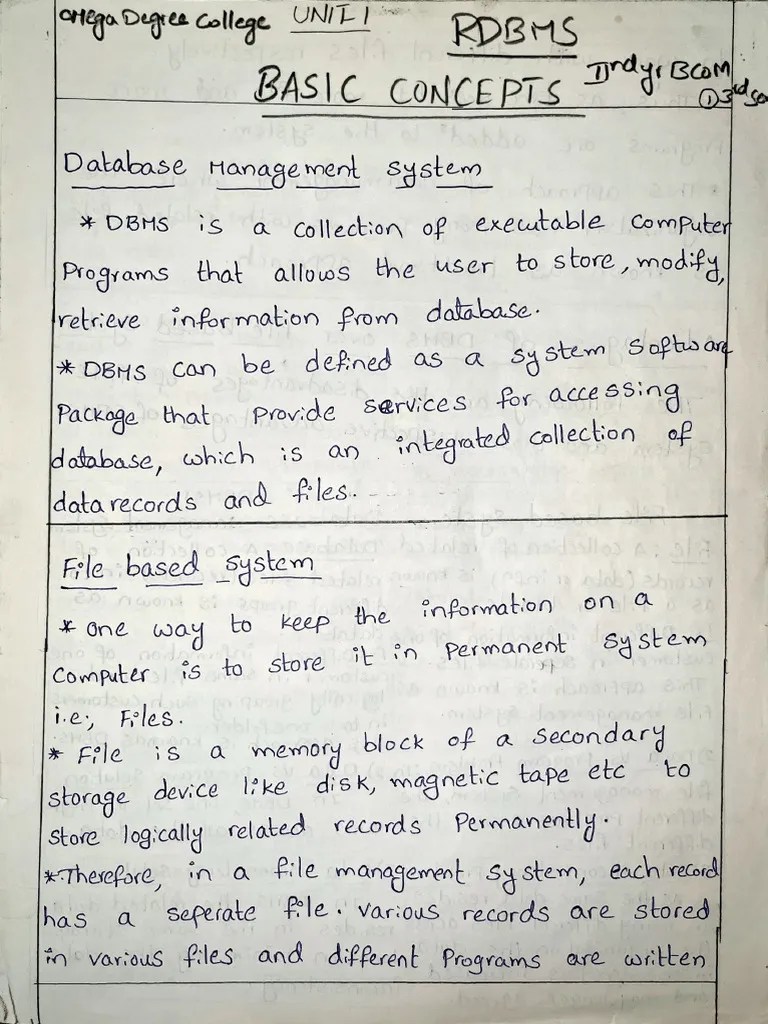 Omega Degree College UNIT 1
RDBMS
IInd yr BCOM
BASIC CONCEPTS
① 3rd
Database Management system
* DBMS is a collection of executable computer
Programs that allows the user to store, modify,
retrieve information from database.
* DBMS can be defined as a system software
Package that provide services for accessing
database, which is an integrated collection of
data records and files.
File based system
* one way to keep the information on a
computer is to store it in permanent system
i.e;, Files.
* File is a memory block of a secondary
storage device like disk, magnetic tape etc to
store logically related records permanently.
* Therefore, in a file management system, each record
has a seperate file. various records are stored
in various files and different Programs are written